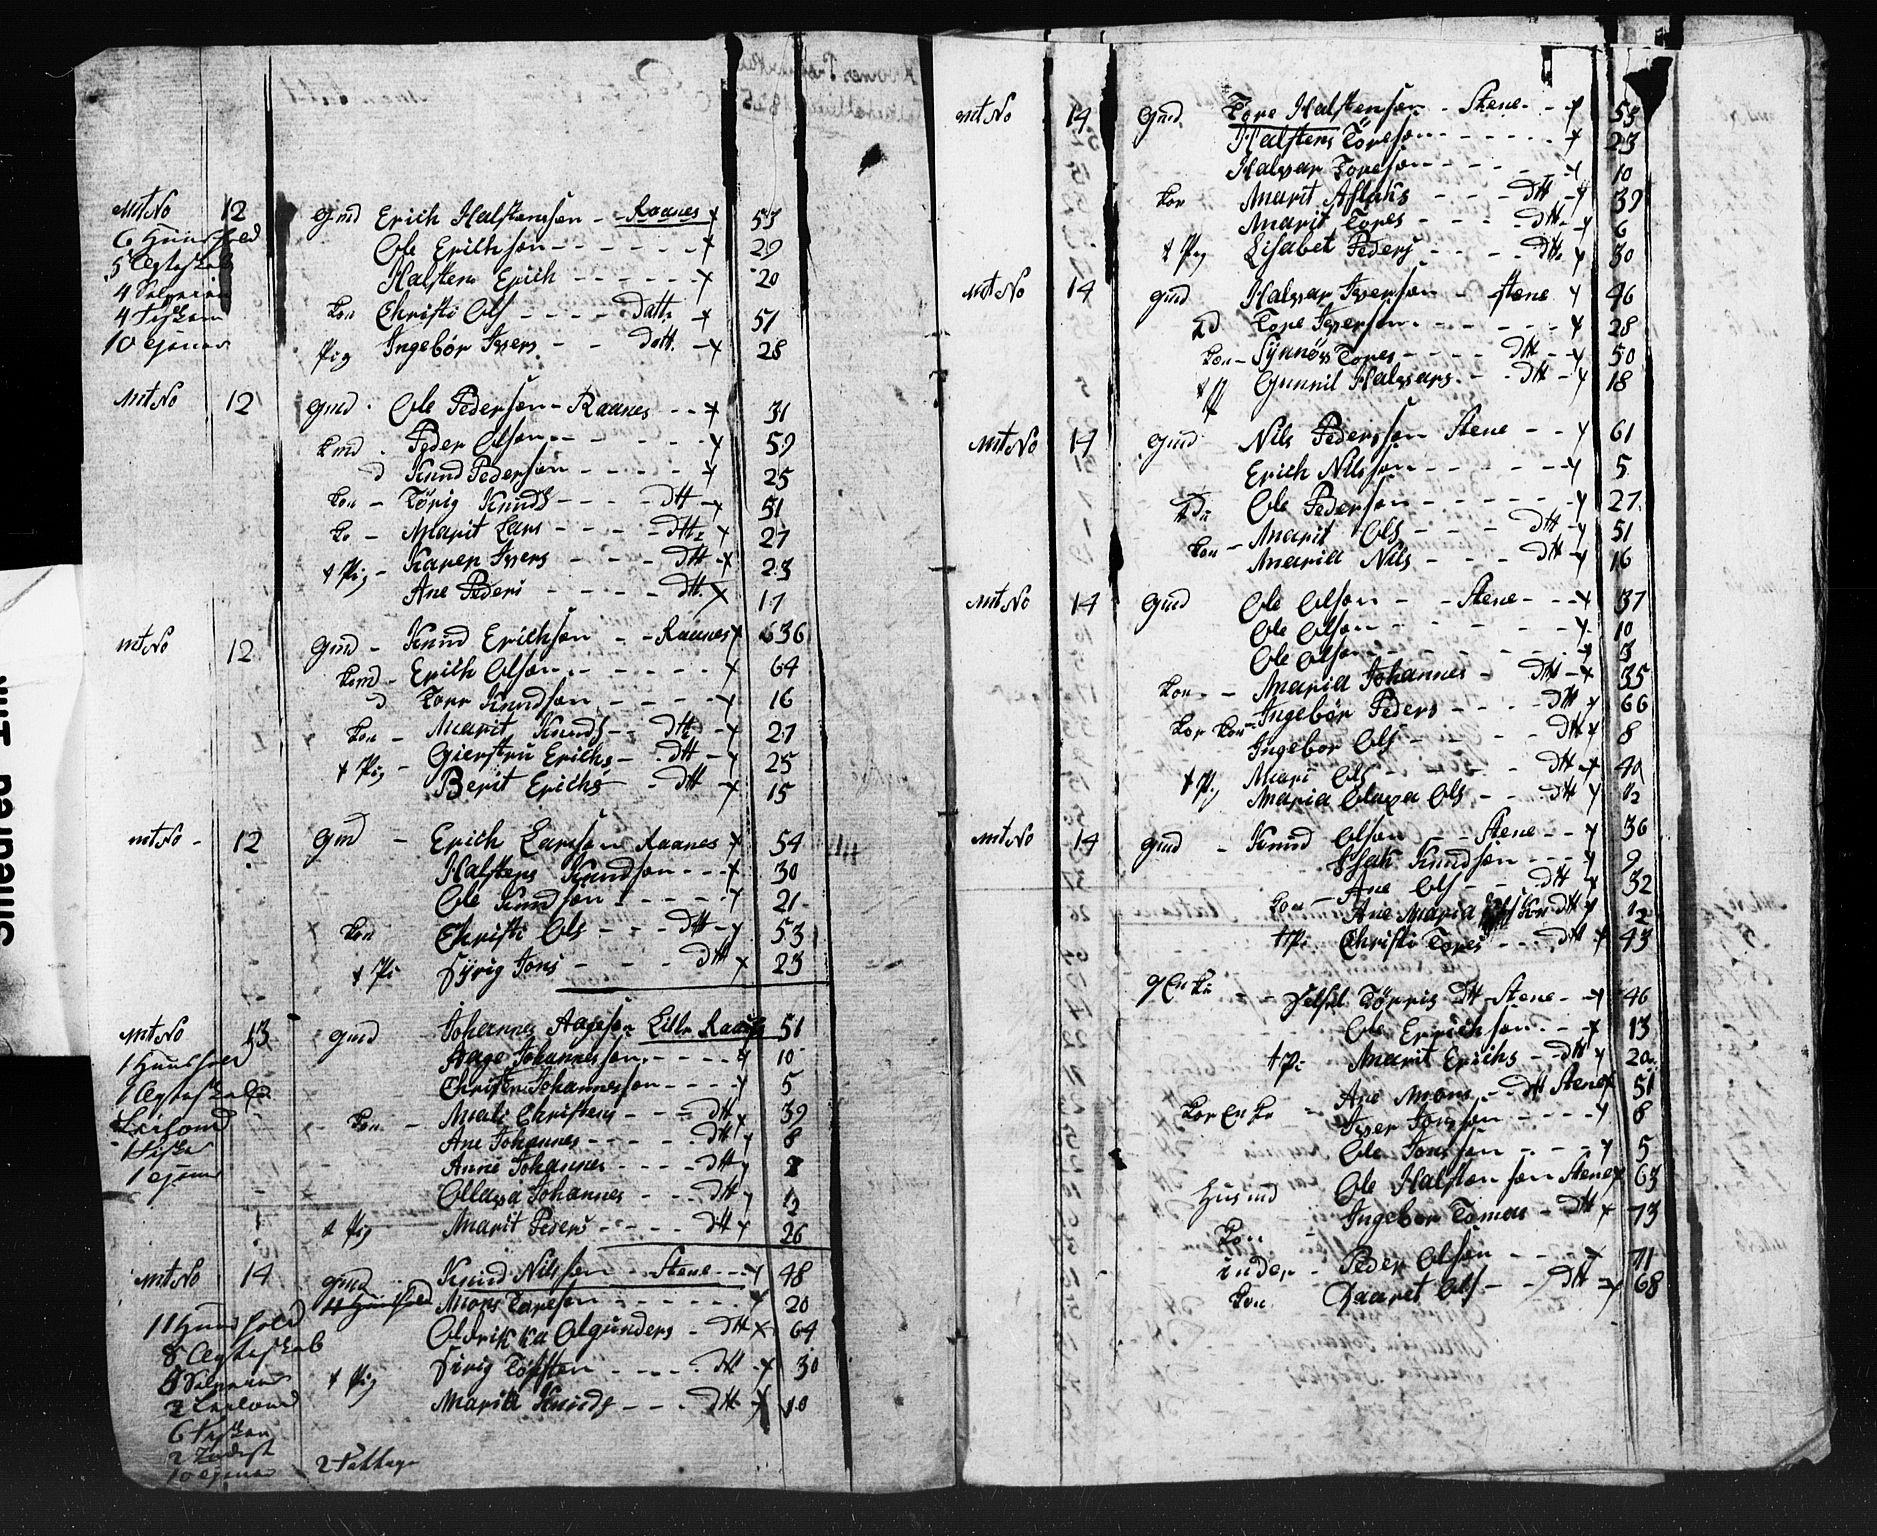 mt No 12 gmd Erich Halstensøn - Raanes 53
6 Huusfold Ole Erichsøn 29
5 Ægteskab Halsten Erich 20
4 kon Christi Ols Datt. 51
10 Pig Ingebør Ivers Datt. 28
mt No 12 gmd Ole Pedersøn - Raanes 31
kmd Peder Olsøn 59
d Knud Pedersøn 25
kon - Tørig Knuds Dtt 51
ko - Marit Lars Dtt 27
+ Pig - Karen Ivers Dtt 23
Ane Peders Dtt 17
mt No 12 gmd - Knud Erichsøn - Raanes 36
kmd - Erich Olsøn 64
d Tore Knudsøn 16
kon - Marit Knuds Dtt 27
+ Pig - Giertru Erichs Dtt 25
Berit Erichs Dtt 15
mt No - 12 gmd - Erich Larsøn Raanes 54
Halsten Knudsøn 30
Ole Knudsøn 21
kon Christi Ols Dtt 53
+ Pi Syrig Jons Dtt 23
mt No 13 gmd Johannes Aagesøn Litle Raanes 51
1 Huusfold Aage Johannessøn 10
1 Ægteskab Christen Johannessøn 5
kon - Mali Christens Dtt 39
Ane Johannes Dtt 8
1 Anne Johannes Dtt 2
Ollava Johannes Dtt 1/2
+ Pig Marit Peders Dtt 26
mt No 14 gmd Knud Nilssøn - Stene 48
Mons Toresøn 20
11 Huusfold Olgunders Dtt 64
8 Ægteskab + Pig Sirig Dtt 30
Marit Knuds Dtt 10
2
6
2
10 2
mt No 14 gmd Tore Halstensøn - Stene 53
Halsten Toresøn 23
Halvar Toresøn 10
kon Marit Aslaks Dtt 39
Marit Tores Dtt 6
+ Pig Lisabet Peders Dtt 30
mt No 14 gmd Halvar Iversøn - Stene 46
d Tore Iversøn 28
kon - Synnøv Tores Dtt 50
+ P Gunnil Halvars Dtt 18
mt No 14 gmd Nils Pederssøn Stene 61
Erich Nilssøn 5
Ole Pedersøn 27
kon - Marit Ols Dtt 51
Marit Nils Dtt 16
mt No 14 gmd Ole Olsøn - Stene 37
Ole Olsøn 10
Ole Olsøn 3
kon - Maria Johannes Dtt 35
kor kon - Ingebør Peders Dtt 66
Ingebor Ols Dtt 8
+ Pig Mari Ols Dtt 40
Maria Olava Ols Dtt 1/2
mt No 14 gmd - Knud Olsøn - Stene 36
Knudsøn 9
kon - Ane Ols Dtt 32
Ane Maria Kn Dtt 1/2
+ Pi Christi Tores Dtt 43
g Enke Tørris Dtt Stene 46
Ole Errichsøn 13
+ Pi Marit Erichs Dtt 20
kor Enke - Ane Mons Dtt Stene 51
Iver Jonssøn 8
Ole Jonssøn 5
Husmd Ole Halstensøn Stene 63
kon Ingebor Tomas Dtt 73
inder - Peder Olsøn 71
kon Ols Dtt 68